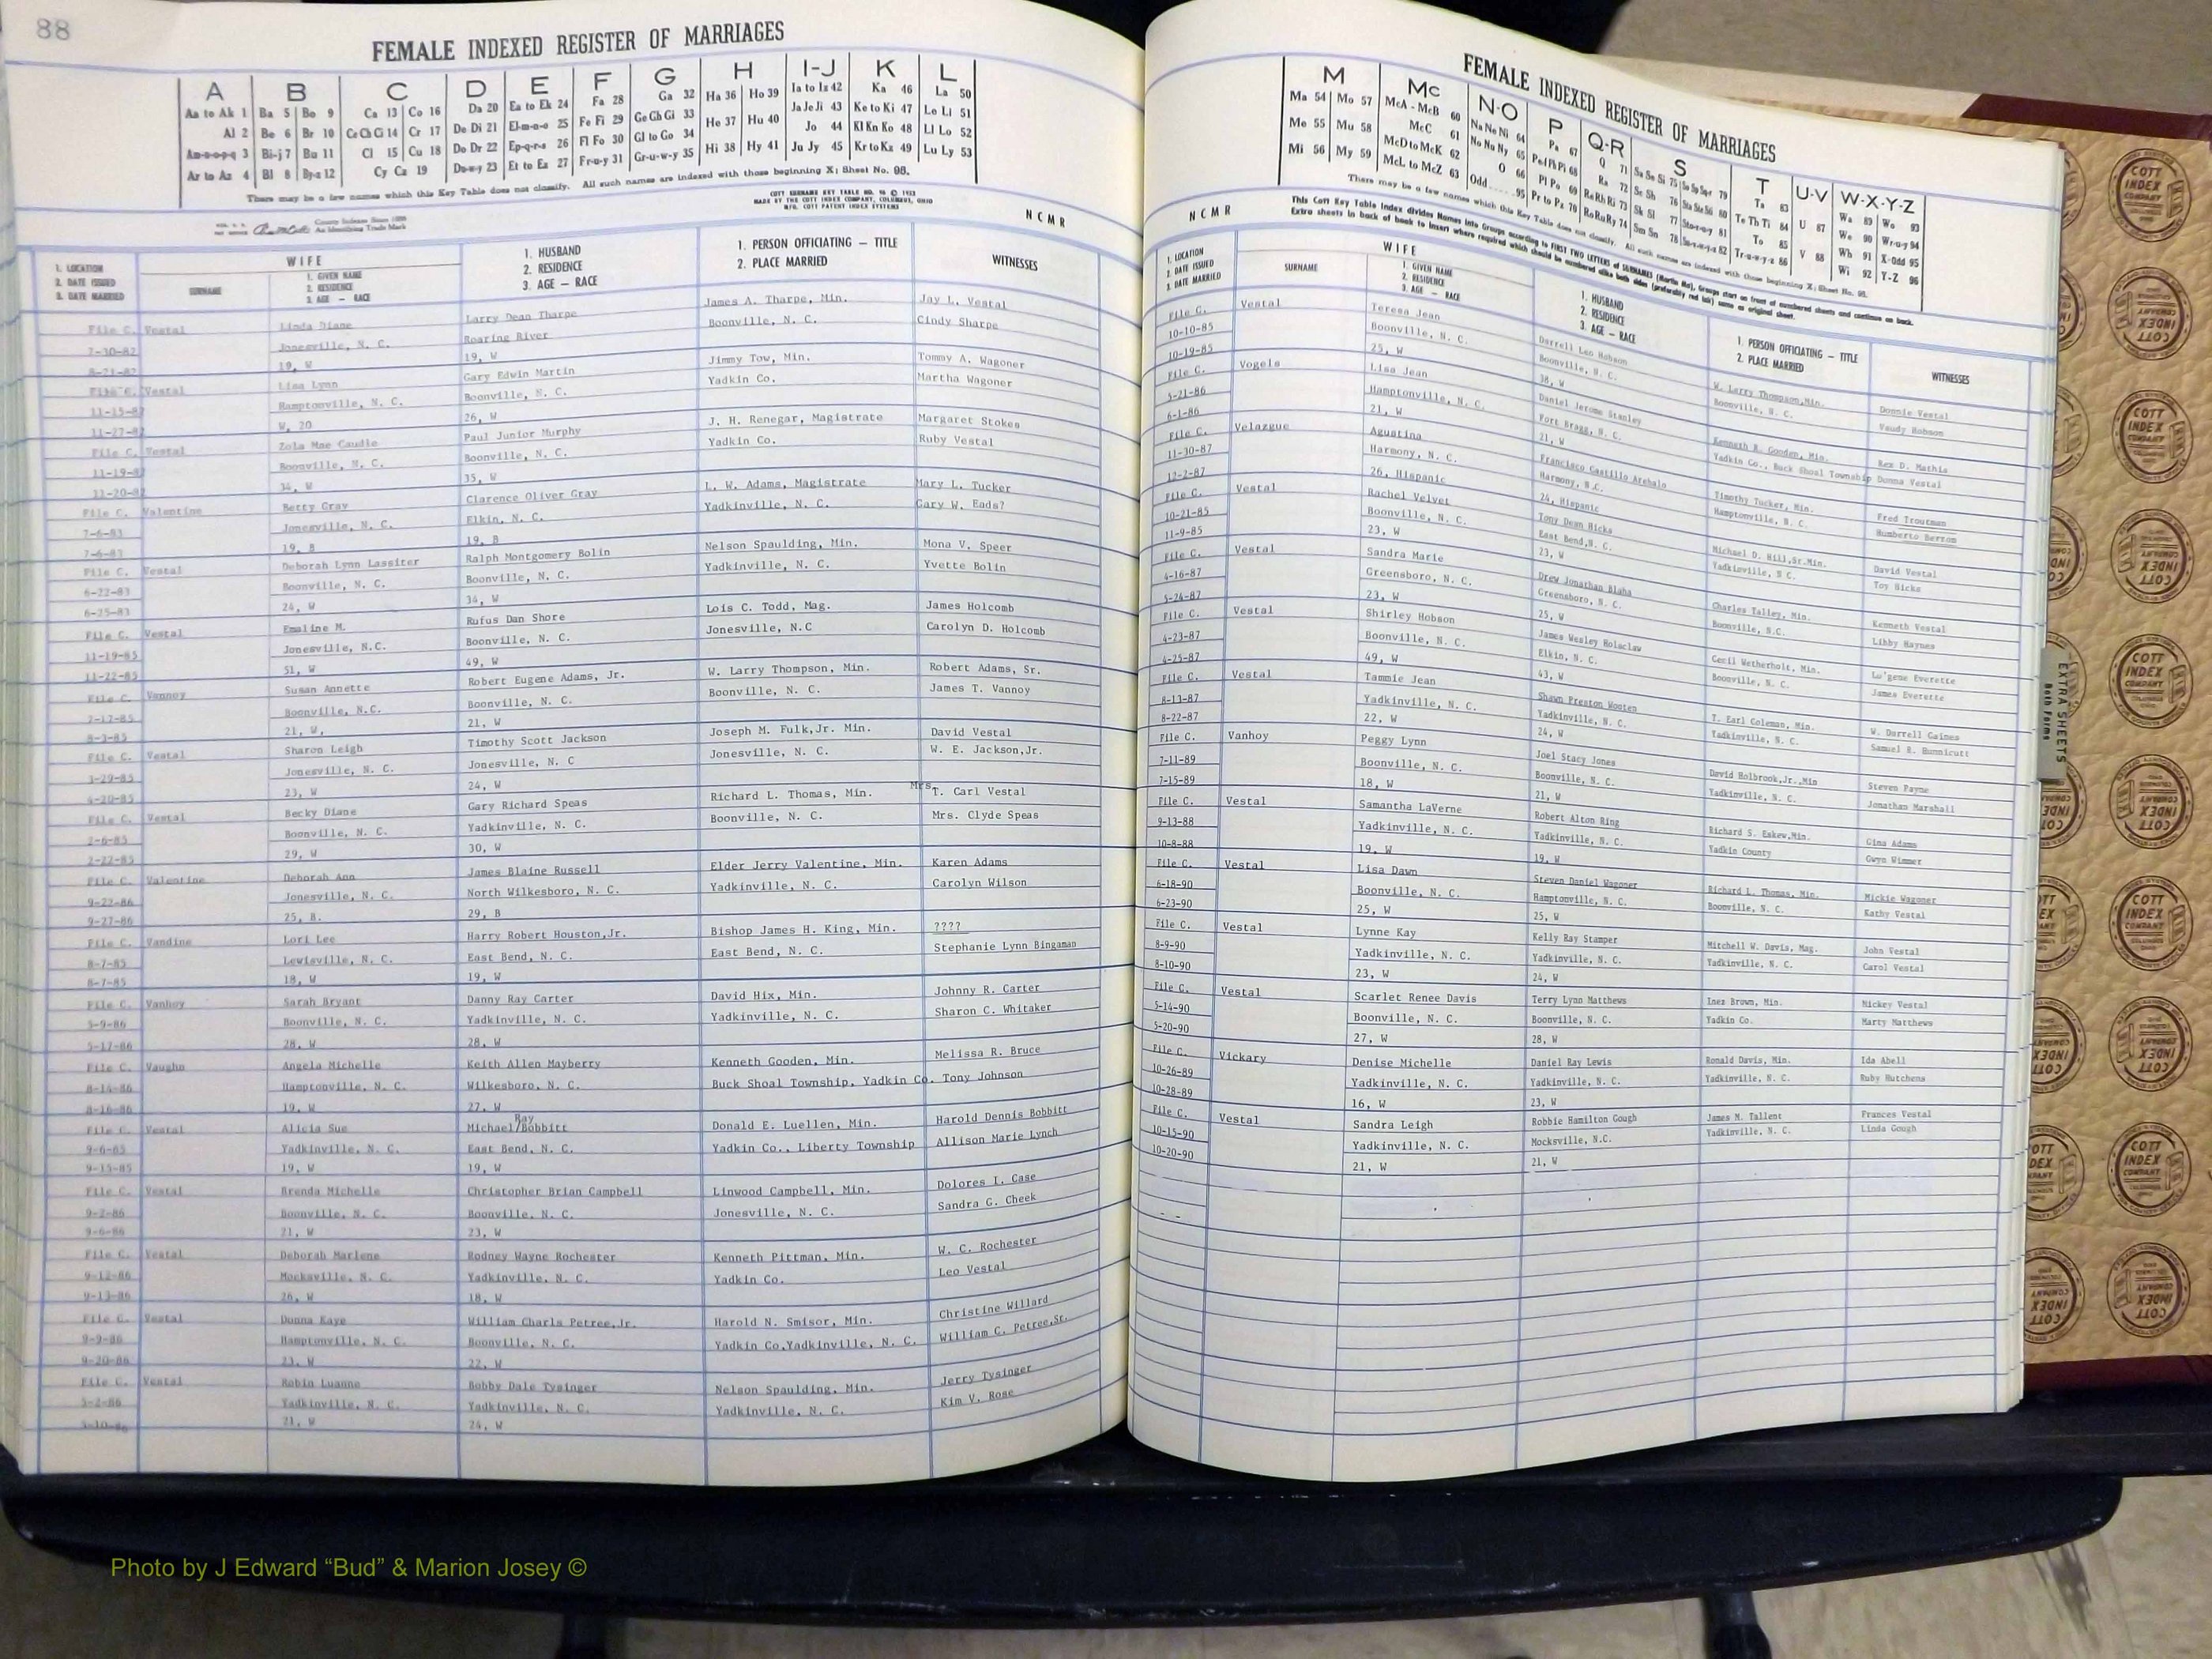 88
FEMALE INDEXED REGISTER OF MARRIAGES
A B C D E F G H I-J K L
Aa to Ak 1 Ba 5 Bo 9 Ca 13 Co 16 Da 20 Ea to Ek 24 Fa 28 Ga 32 Ha 36 Ho 39 Ia to Iz 42 Ka 46 La 50
Al 2 Be 6 Br 10 Ce Ch Ci 14 Cr 17 De Di 21 El-m-n-o 25 Fe Fi 29 Ge Gh Gi 33 He 37 Hu 40 Ja Je Ji 43 Ke to Ki 47 Le Li 51
Am-n-o-p-q 3 Bi-j 7 Bu 11 Cl 15 Cu 18 Do Dr 22 Ep-q-r-s 26 Fl Fo 30 Gl to Go 34 Hi 38 Hy 41 Jo 44 Kl Kn Ko 48 Ll Lo 52
Ar to Az 4 Bl 8 By-z 12 Cy Cz 19 Du-w-y 23 Et to Ez 27 Fr-u-y 31 Gr-u-w-y 35 Ju Jy 45 Kr to Kz 49 Lu Ly 53
There may be a few names which this Key Table does not classify. All such names are indexed with those beginning X; Sheet No. 95.
COTT SURNAME KEY TABLE NO. 96 © 1923
MADE BY THE COTT INDEX COMPANY, COLUMBUS, OHIO
MFG. COTT PATENT INDEX SYSTEMS
County Indexes Since 1888
An Identifying Trade Mark
NCMR
1. LOCATION
2. DATE ISSUED
3. DATE MARRIED
WIFE
SURNAME
1. GIVEN NAME
2. RESIDENCE
3. AGE — RACE
1. HUSBAND
2. RESIDENCE
3. AGE — RACE
1. PERSON OFFICIATING — TITLE
2. PLACE MARRIED
WITNESSES
File C. Vestal Linda Diane Larry Dean Tharpe James A. Tharpe, Min. Jay L. Vestal
7-30-82 Jonesville, N. C. Roaring River Boonville, N. C. Cindy Sharpe
8-21-82 19, W 19, W
File C. Vestal Lisa Lynn Gary Edwin Martin Jimmy Tow, Min. Tommy A. Wagoner
11-15-82 Hamptonville, N. C. Boonville, N. C. Yadkin Co. Martha Wagoner
11-27-82 W, 20 26, W
File C. Vestal Zola Mae Caudle Paul Junior Murphy J. H. Renegar, Magistrate Margaret Stokes
11-19-82 Boonville, N. C. Boonville, N. C. Yadkin Co. Ruby Vestal
11-20-82 34, W 35, W
File C. Valentine Betty Gray Clarence Oliver Gray L. W. Adams, Magistrate Mary L. Tucker
7-6-83 Jonesville, N. C. Elkin, N. C. Yadkinville, N. C. Gary W. Eads?
7-6-83 19, B 19, B
File C. Vestal Deborah Lynn Lassiter Ralph Montgomery Bolin Nelson Spaulding, Min. Mona V. Speer
6-22-83 Boonville, N. C. Boonville, N. C. Yadkinville, N. C. Yvette Bolin
6-25-83 24, W 34, W
File C. Vestal Emaline M. Rufus Dan Shore Lois C. Todd, Mag. James Holcomb
11-19-85 Jonesville, N.C. Boonville, N. C. Jonesville, N.C Carolyn D. Holcomb
11-22-85 51, W 49, W
File C. Vannoy Susan Annette Robert Eugene Adams, Jr. W. Larry Thompson, Min. Robert Adams, Sr.
7-17-85 Boonville, N.C. Boonville, N. C. Boonville, N. C. James T. Vannoy
8-3-85 21, W, 21, W
File C. Vestal Sharon Leigh Timothy Scott Jackson Joseph M. Fulk,Jr. Min. David Vestal
3-29-85 Jonesville, N. C. Jonesville, N. C Jonesville, N. C. W. E. Jackson,Jr.
4-20-85 23, W 24, W
File C. Vestal Becky Diane Gary Richard Speas Richard L. Thomas, Min. Mrs. T. Carl Vestal
2-6-85 Boonville, N. C. Yadkinville, N. C. Boonville, N. C. Mrs. Clyde Speas
2-22-85 29, W 30, W
File C. Valentine Deborah Ann James Blaine Russell Elder Jerry Valentine, Min. Karen Adams
9-22-86 Jonesville, N. C. North Wilkesboro, N. C. Yadkinville, N. C. Carolyn Wilson
9-27-86 25, B. 29, B
File C. Vandine Lori Lee Harry Robert Houston,Jr. Bishop James H. King, Min. ????
8-7-85 Lewisville, N. C. East Bend, N. C. East Bend, N. C. Stephanie Lynn Bingaman
8-7-85 18, W 19, W
File C. Vanhoy Sarah Bryant Danny Ray Carter David Hix, Min. Johnny R. Carter
5-9-86 Boonville, N. C. Yadkinville, N. C. Yadkinville, N. C. Sharon C. Whitaker
5-17-86 28, W 28, W
File C. Vaughn Angela Michelle Keith Allen Mayberry Kenneth Gooden, Min. Melissa R. Bruce
8-14-86 Hamptonville, N. C. Wilkesboro, N. C. Buck Shoal Township, Yadkin Co. Tony Johnson
8-16-86 19, W 27, W
File C. Vestal Alicia Sue Michael/Bobbitt Ray Donald E. Luellen, Min. Harold Dennis Bobbitt
9-6-85 Yadkinville, N. C. East Bend, N. C. Yadkin Co., Liberty Township Allison Marie Lynch
9-15-85 19, W 19, W
File C. Vestal Brenda Michelle Christopher Brian Campbell Linwood Campbell, Min. Dolores I. Case
9-2-86 Boonville, N. C. Boonville, N. C. Jonesville, N. C. Sandra G. Cheek
9-6-86 21, W 23, W
File C. Vestal Deborah Marlene Rodney Wayne Rochester Kenneth Pittman, Min. W. C. Rochester
9-12-86 Mocksville, N. C. Yadkinville, N. C. Yadkin Co. Leo Vestal
9-13-86 26, W 18, W
File C. Vestal Donna Kaye William Charls Petree,Jr. Harold N. Smisor, Min. Christine Willard
9-9-86 Hamptonville, N. C. Boonville, N. C. Yadkin Co,Yadkinville, N. C. William C. Petree,Sr.
9-20-86 23, W 22, W
File C. Vestal Robin Luanne Bobby Dale Tysinger Nelson Spaulding, Min. Jerry Tysinger
5-2-86 Yadkinville, N. C. Yadkinville, N. C. Yadkinville, N. C. Kim V. Rose
5-10-86 21, W 24, W
FEMALE INDEXED REGISTER OF MARRIAGES
M Mc N-O P Q-R S T U-V W-X-Y-Z
Ma 54 Mo 57 McA - McB 60 Na Ne Ni 64 Pa 67 Q 71 Sa Se Si 75 So Sp Sq-r 79 Ta 83 U 87 Wa 89 Wo 93
Me 55 Mu 58 McC 61 No Nu Ny 65 Pe Pf Ph Pi 68 Ra 72 Sc Sh 76 Sta Ste Sti 80 Te Th Ti 84 V 88 We 90 Wr-u-y 94
Mi 56 My 59 McD to McK 62 O 66 Pl Po 69 Re Rh Ri 73 Sk Sl 77 Sto-r-u-y 81 To 85 Wh 91 X-Odd 95
McL to McZ 63 Odd .... 95 Pr to Pz 70 Ro Ru Ry 74 Sm Sn 78 Su-v-w-y-z 82 Tr-u-w-y-z 86 Wi 92 Y-Z 96
There may be a few names which this Key Table does not classify. All such names are indexed with those beginning X; Sheet No. 95.
This Cott Key Table Index divides Names into Groups according to FIRST TWO LETTERS of SURNAMES (Martin Ma), Groups start on front of numbered sheets and continue on back.
Extra sheets in back of book to insert where required which should be numbered alike both sides (preferably red ink) same as original sheet.
NCMR
1. LOCATION
2. DATE ISSUED
3. DATE MARRIED
WIFE
SURNAME
1. GIVEN NAME
2. RESIDENCE
3. AGE — RACE
1. HUSBAND
2. RESIDENCE
3. AGE — RACE
1. PERSON OFFICIATING — TITLE
2. PLACE MARRIED
WITNESSES
File C. Vestal Teresa Jean Darrell Leo Hobson W. Larry Thompson,Min. Donnie Vestal
10-10-85 Boonville, N. C. Boonville, N. C. Boonville, N. C. Vaudy Hobson
10-19-85 25, W 38, W
File C. Vogels Lisa Jean Daniel Jerome Stanley Kenneth R. Gooden, Min. Rex D. Mathis
5-21-86 Hamptonville, N. C. Fort Bragg, N. C. Yadkin Co., Buck Shoal Township Donna Vestal
6-1-86 21, W 21, W
File C. Velazgue Agustina Francisco Castillo Arehalo Timothy Tucker, Min. Fred Troutman
11-30-87 Harmony, N. C. Harmony, N.C. Hamptonville, N. C. Humberto Berzom
12-2-87 26, Hispanic 24, Hispanic
File C. Vestal Rachel Velvet Tony Dean Hicks Michael D. Hill,Sr.Min. David Vestal
10-21-85 Boonville, N. C. East Bend,N. C. Yadkinville, N C. Toy Hicks
11-9-85 23, W 23, W
File C. Vestal Sandra Marie Drew Jonathan Blaha Charles Talley, Min. Kenneth Vestal
4-16-87 Greensboro, N. C. Greensboro, N. C. Boonville, N.C. Libby Haynes
5-24-87 23, W 25, W
File C. Vestal Shirley Hobson James Wesley Holsclaw Cecil Wetherholt, Min. Lu'gene Everette
4-23-87 Boonville, N. C. Elkin, N. C. Boonville, N. C. James Everette
4-25-87 49, W 43, W
File C. Vestal Tammie Jean Shawn Preston Wooten T. Earl Coleman, Min. W. Darrell Gaines
8-13-87 Yadkinville, N. C. Yadkinville, N. C. Yadkinville, N. C. Samuel R. Hunnicutt
8-22-87 22, W 24, W
File C. Vanhoy Peggy Lynn Joel Stacy Jones David Holbrook,Jr.,Min Steven Payne
7-11-89 Boonville, N. C. Boonville, N. C. Yadkinville, N. C. Jonathan Marshall
7-15-89 18, W 21, W
File C. Vestal Samantha LaVerne Robert Alton Ring Richard S. Eskew,Min. Gina Adams
9-13-88 Yadkinville, N. C. Yadkinville, N. C. Yadkin County Gwyn Wimmer
10-8-88 19, W 19, W
File C. Vestal Lisa Dawn Steven Daniel Wagoner Richard L. Thomas, Min. Mickie Wagoner
6-18-90 Boonville, N. C. Hamptonville, N. C. Boonville, N. C. Kathy Vestal
6-23-90 25, W 25, W
File C. Vestal Lynne Kay Kelly Ray Stamper Mitchell W. Davis, Mag. John Vestal
8-9-90 Yadkinville, N. C. Yadkinville, N. C. Yadkinville, N. C. Carol Vestal
8-10-90 23, W 24, W
File C. Vestal Scarlet Renee Davis Terry Lynn Matthews Inez Brown, Min. Mickey Vestal
5-14-90 Boonville, N. C. Boonville, N. C. Yadkin Co. Marty Matthews
5-20-90 27, W 28, W
File C. Vickary Denise Michelle Daniel Ray Lewis Ronald Davis, Min. Ida Abell
10-26-89 Yadkinville, N. C. Yadkinville, N. C. Yadkinville, N. C. Ruby Hutchens
10-28-89 16, W 23, W
File C. Vestal Sandra Leigh Robbie Hamilton Gough James M. Tallent Frances Vestal
10-15-90 Yadkinville, N. C. Mocksville, N.C. Yadkinville, N. C. Linda Gough
10-20-90 21, W 21, W
EXTRA SHEETS
Both Forms
COTT INDEX COMPANY
Photo by J Edward “Bud” & Marion Josey ©